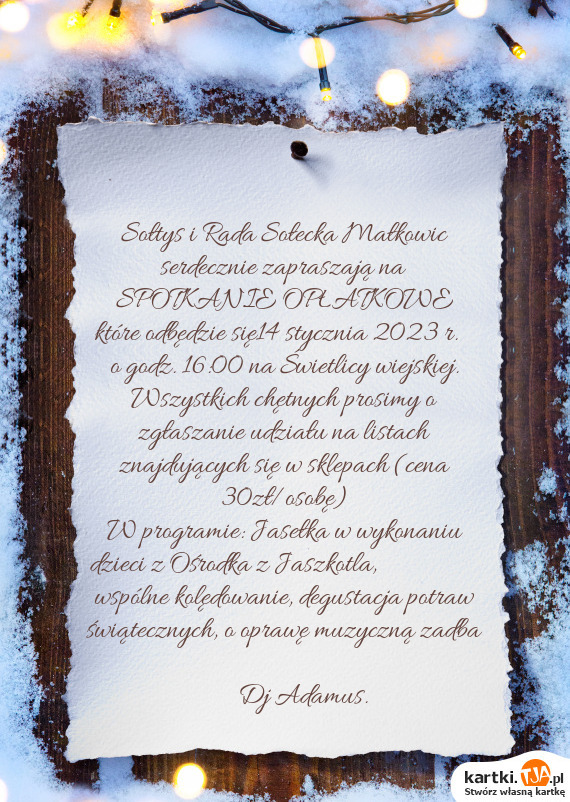 Sołtys i Rada Sołecka Małkowic
serdecznie zapraszają na
SPOTKANIE OPŁATKOWE
które odbędzie się14 stycznia 2023 r.
o godz. 16.00 na Świetlicy wiejskiej.
Wszystkich chętnych prosimy o
zgłaszanie udziału na listach
znajdujących się w sklepach ( cena
30zł/ osobę )
W programie: Jasełka w wykonaniu
dzieci z Ośrodka z Jaszkotla,
wspólne kolędowanie, degustacja potraw
świątecznych, o oprawę muzyczną zadba
Dj Adamus.
kartki.TJA.pl
Stwórz własną kartkę